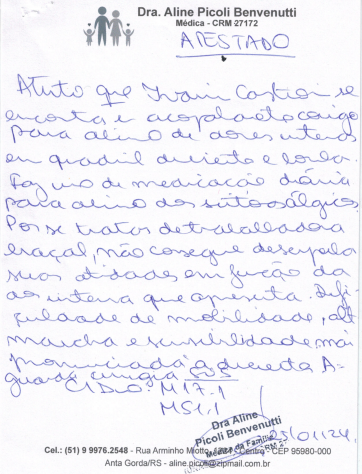 Dra. Aline Picoli Benvenutti
Médica - CRM 27172
ATESTADO
Atesto que
se
encontra e
comigo
para alívio de dores intensas
em quadril direito e lombar.
Faz uso de medicação diária
para alívio dos
álgicos
Por se tratar de trabalhadora
braçal, não consegue
suas atividades em função da
dor intensa que apresenta. Difi-
culdade de mobilidade, alt
marcha e sensibilidade, mais
pronunciada à direita. A-
guarda cirurgia
CIDs: M17.1
M51.1
Dra Aline
Picoli Benvenutti
Médica da Família
25/01/24.
Cel.: (51) 9 9976.2548 - Rua Arminho Miotto, - Centro - CEP 95980-000
Anta Gorda/RS - aline.picoli@zipmail.com.br